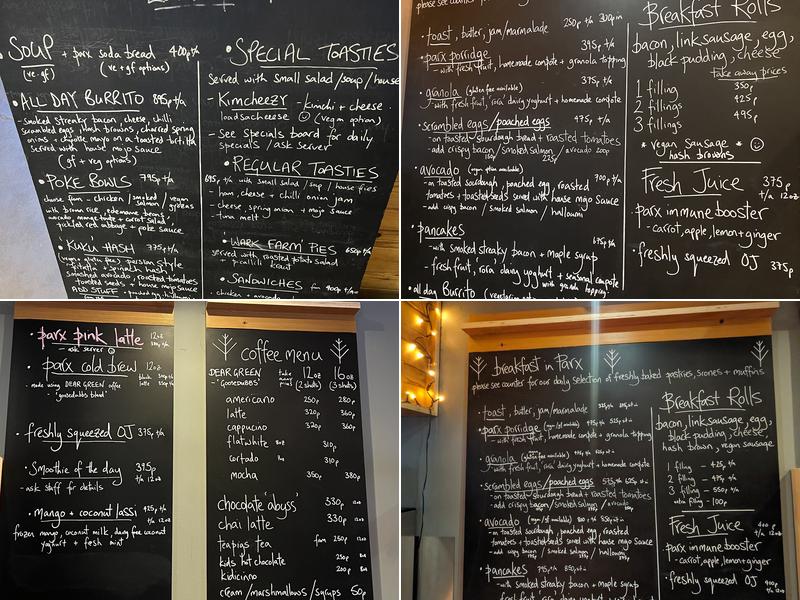 • SOUP + parx soda bread 400p t/a
(ve.gf) (ve + gf options)
• ALL DAY BURRITO 895p t/a
- smoked streaky bacon, cheese, chilli
scrambled eggs, hash browns, charred spring
onions + chipotle mayo on a toasted tortilla
served with house mojo sauce
(gf + veg options)
• POKE BOWLS 795p t/a
choose from - chicken / smoked salmon / vegan greens
with brown rice, edamame beans,
avocado, mango + carrot salad
pickled red cabbage + poke sauce
• KUKU HASH 775p t/a
(vegan + gluten free) persian style
frittata + spinach hash
smashed avocado, roasted tomatoes
toasted seeds + house mojo sauce
ADD STUFF
• SPECIAL TOASTIES
Served with small salad / soup / house
- Kimcheezy - kimchi + cheese
loadsacheese ☺ (vegan option)
- See Specials board for daily
specials / ask server
• REGULAR TOASTIES
695p t/a with small salad / soup / house fries
- ham, cheese + chilli onion jam
- cheese, spring onion + mojo sauce
- tuna melt
• WARK FARM PIES 650p t/a
served with roasted potato salad
piccalilli kraut
• SANDWICHES from 400p t/a
- chicken + avocado
please see counter
• toast, butter, jam/marmalade 250p t/a 300p in
395p t/a
• parx porridge
- with fresh fruit, homemade compote + granola topping
375p t/a
• granola (gluten free available)
- with fresh fruit, 'rora' dairy yoghurt + homemade compote
• scrambled eggs/poached eggs 475p t/a
- on toasted sourdough bread + roasted tomatoes
- add crispy bacon/smoked salmon / avocado 200p
150p 225p
• avocado (vegan option available) 700p t/a
- on toasted sourdough, poached egg, roasted
tomatoes + toasted seeds served with house mojo sauce
- add crispy bacon / smoked salmon / halloumi
• pancakes 675p t/a
- with smoked streaky bacon + maple syrup
- fresh fruit, 'rora' dairy yoghurt + seasonal compote
with granola topping
• all day Burrito
Breakfast Rolls
bacon, link sausage, egg,
black pudding, cheese
take away prices
1 filling 350p
2 fillings 425p
3 fillings 495p
* vegan sausage *
hash browns ☺
Fresh Juice 375p
t/a 12oz
parx immune booster
- carrot, apple, lemon + ginger
• freshly squeezed OJ 375p
• parx pink latte 12oz
- ask server ☺
• parx cold brew 12oz
- made using DEAR GREEN coffee
'goosedubbs' blend
• freshly squeezed OJ 375p t/a
• Smoothie of the day 375p
t/a 12oz
- ask staff for details
• mango + coconut lassi 425p t/a
t/a 12oz
frozen mango, coconut milk, dairy free coconut
yoghurt + fresh mint
coffee menu
DEAR GREEN take away prices 12oz 16oz
'Goosedubbs' (2 shots) (3 shots)
americano 250p 280p
latte 320p 360p
cappucino 320p 360p
flat white 8oz 310p
cortado 310p
mocha 350p 380p
chocolate 'abyss' 330p
chai latte 330p 12oz
teapigs tea from 250p 12oz
kids hot chocolate 250p
kidicinno 200p
cream / marshmallows / syrups 50p
breakfast in Parx
please see counter for our daily selection of freshly baked pastries, scones + muffins
• toast, butter, jam/marmalade
• parx porridge
- with fresh fruit, homemade compote + granola topping
• granola (gluten free available)
- with fresh fruit, 'rora' dairy yoghurt + homemade compote
• scrambled eggs/poached eggs
- on toasted sourdough bread + roasted tomatoes
- add crispy bacon/smoked salmon / avocado
• avocado
- on toasted sourdough, poached egg, roasted
tomatoes + toasted seeds served with house mojo sauce
- add crispy bacon / smoked salmon / halloumi
• pancakes
- with smoked streaky bacon + maple syrup
- fresh fruit, 'rora' dairy yoghurt + seasonal compote
Breakfast Rolls
bacon, link sausage, egg,
black pudding, cheese,
hash brown, vegan sausage
1 filling - 425p t/a
2 filling - 475p t/a
3 filling - 550p t/a
extra filling - 100p
Fresh Juice 400p
t/a 12oz
parx immune booster
- carrot, apple, lemon + ginger
• freshly squeezed OJ 400p
t/a 12oz